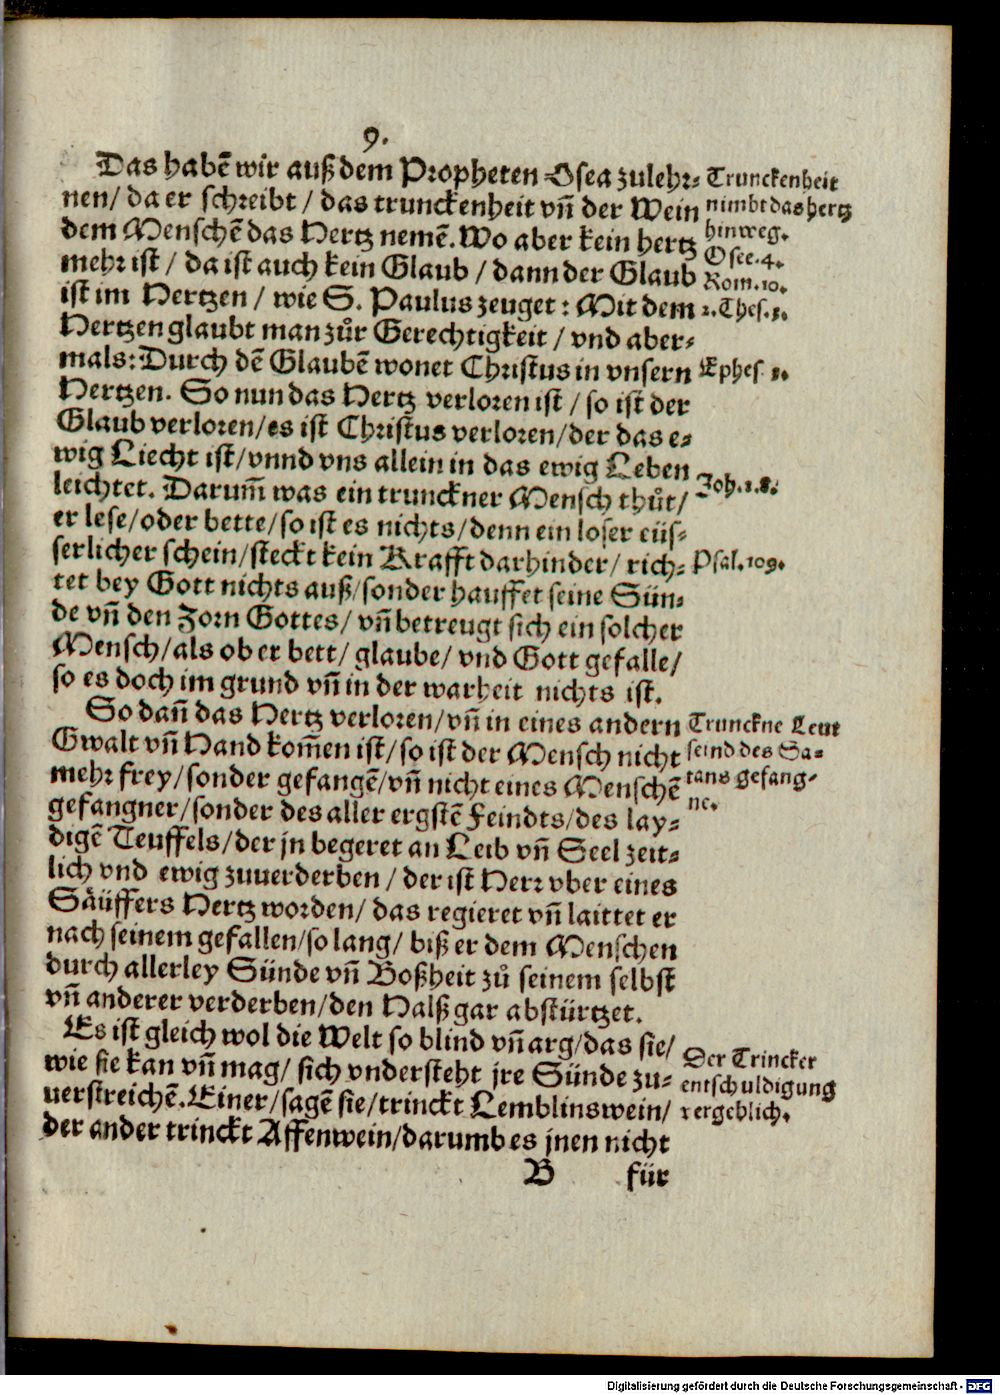 9.
Das habẽ wir auß dem Propheten Osea zulehr⸗
nen/ da er schreibt/ das trunckenheit vñ der Wein
dem Menschẽ das Hertz nemẽ. Wo aber kein hertz
mehr ist/ da ist auch kein Glaub/ dann der Glaub
ist im Hertzen/ wie S. Paulus zeuget: Mit dem
Hertzen glaubt man zůr Gerechtigkeit/ vnd aber⸗
mals: Durch dẽ Glaubẽ wonet Christus in vnsern
Hertzen. So nun das Hertz verloren ist/ so ist der
Glaub verloren/ es ist Christus verloren/ der das e⸗
wig Liecht ist/ vnnd vns allein in das ewig Leben
leichtet. Darum̃ was ein trunckner Mensch thůt/
er lese/ oder bette/ so ist es nichts/ denn ein loser eüs⸗
serlicher schein/ steckt kein Krafft darhinder/ rich⸗
tet bey Gott nichts auß/ sonder hauffet seine Sün⸗
de vñ den Zorn Gottes/ vñ betreugt sich ein solcher
Mensch/ als ob er bett/ glaube/ vnd Gott gefalle/
so es doch im grund vñ in der warheit nichts ist.
So dañ das Hertz verloren/ vñ in eines andern
Gwalt vñ Hand kom̃en ist/ so ist der Mensch nicht
mehr frey/ sonder gefangẽ/ vñ nicht eines Menschẽ
gefangner/ sonder des aller ergstẽ Feindts/ des lay⸗
digẽ Teuffels/ der jn begeret an Leib vñ Seel zeit⸗
lich vnd ewig zuuerderben/ der ist Herr vber eines
Säüffers Hertz worden/ das regieret vñ laittet er
nach seinem gefallen/ so lang/ biß er dem Menschen
durch allerley Sünde vñ Boßheit zů seinem selbst
vñ anderer verderben/ den Halß gar abstürtzet.
Es ist gleich wol die Welt so blind vñ arg/ das sie/
wie sie kan vñ mag/ sich vndersteht jre Sünde zu⸗
uerstreichẽ. Einer/ sagẽ sie/ trinckt Lemblinswein/
der ander trinckt Affenwein/ darumb es jnen nicht
B für
Trunckenheit
nimbt das hertz
hinweg.
Osee. 4.
Rom. 10.
2. Thes. 3.
Ephes 3.
Joh. 1. 8.
Psal. 109.
Trunckne Leut
seind des Sa⸗
tans gefang⸗
ne.
Der Trincker
entschuldigung
vergeblich.
Digitalisierung gefördert durch die Deutsche Forschungsgemeinschaft - DFG